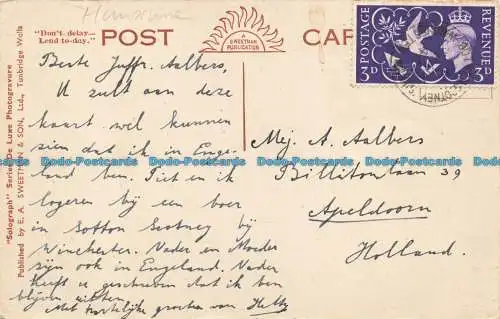 Hampshire
"Don't delay—
Lend to-day."
POST
A
SWEETMAN
PUBLICATION
CAR
POSTAGE
REVENUE
3D
3D
"Solograph" Series De Luxe Photogravure
Published by E. A. SWEETMAN & SON, Ltd., Tunbridge Wells
Beste Juffr. Aalbers,
U zult aan deze
kaart wel kunnen
zien dat ik in Enge-
land ben. Piet en ik
logeren bij een boer
in Sutton Scotney bij
Winchester. Vader en Moeder
zijn ook in Engeland. Vader
heeft u geschreven dat ik ben
blijven zitten.
Met hartelijke groeten van Hetty
Mej. A. Aalbers
Billitonlaan 39
Apeldoorn
Holland.
Dodo-Postcards Dodo-Postcards Dodo-Postcards Dodo-Postcards